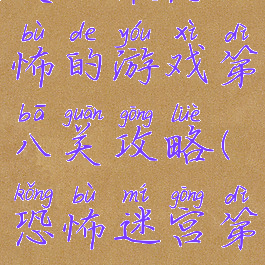 bù de yóu xì dì
怖的游戏第
bā guān gōng lüè
八关攻略(
kǒng bù mí gōng dì
恐怖迷宫第